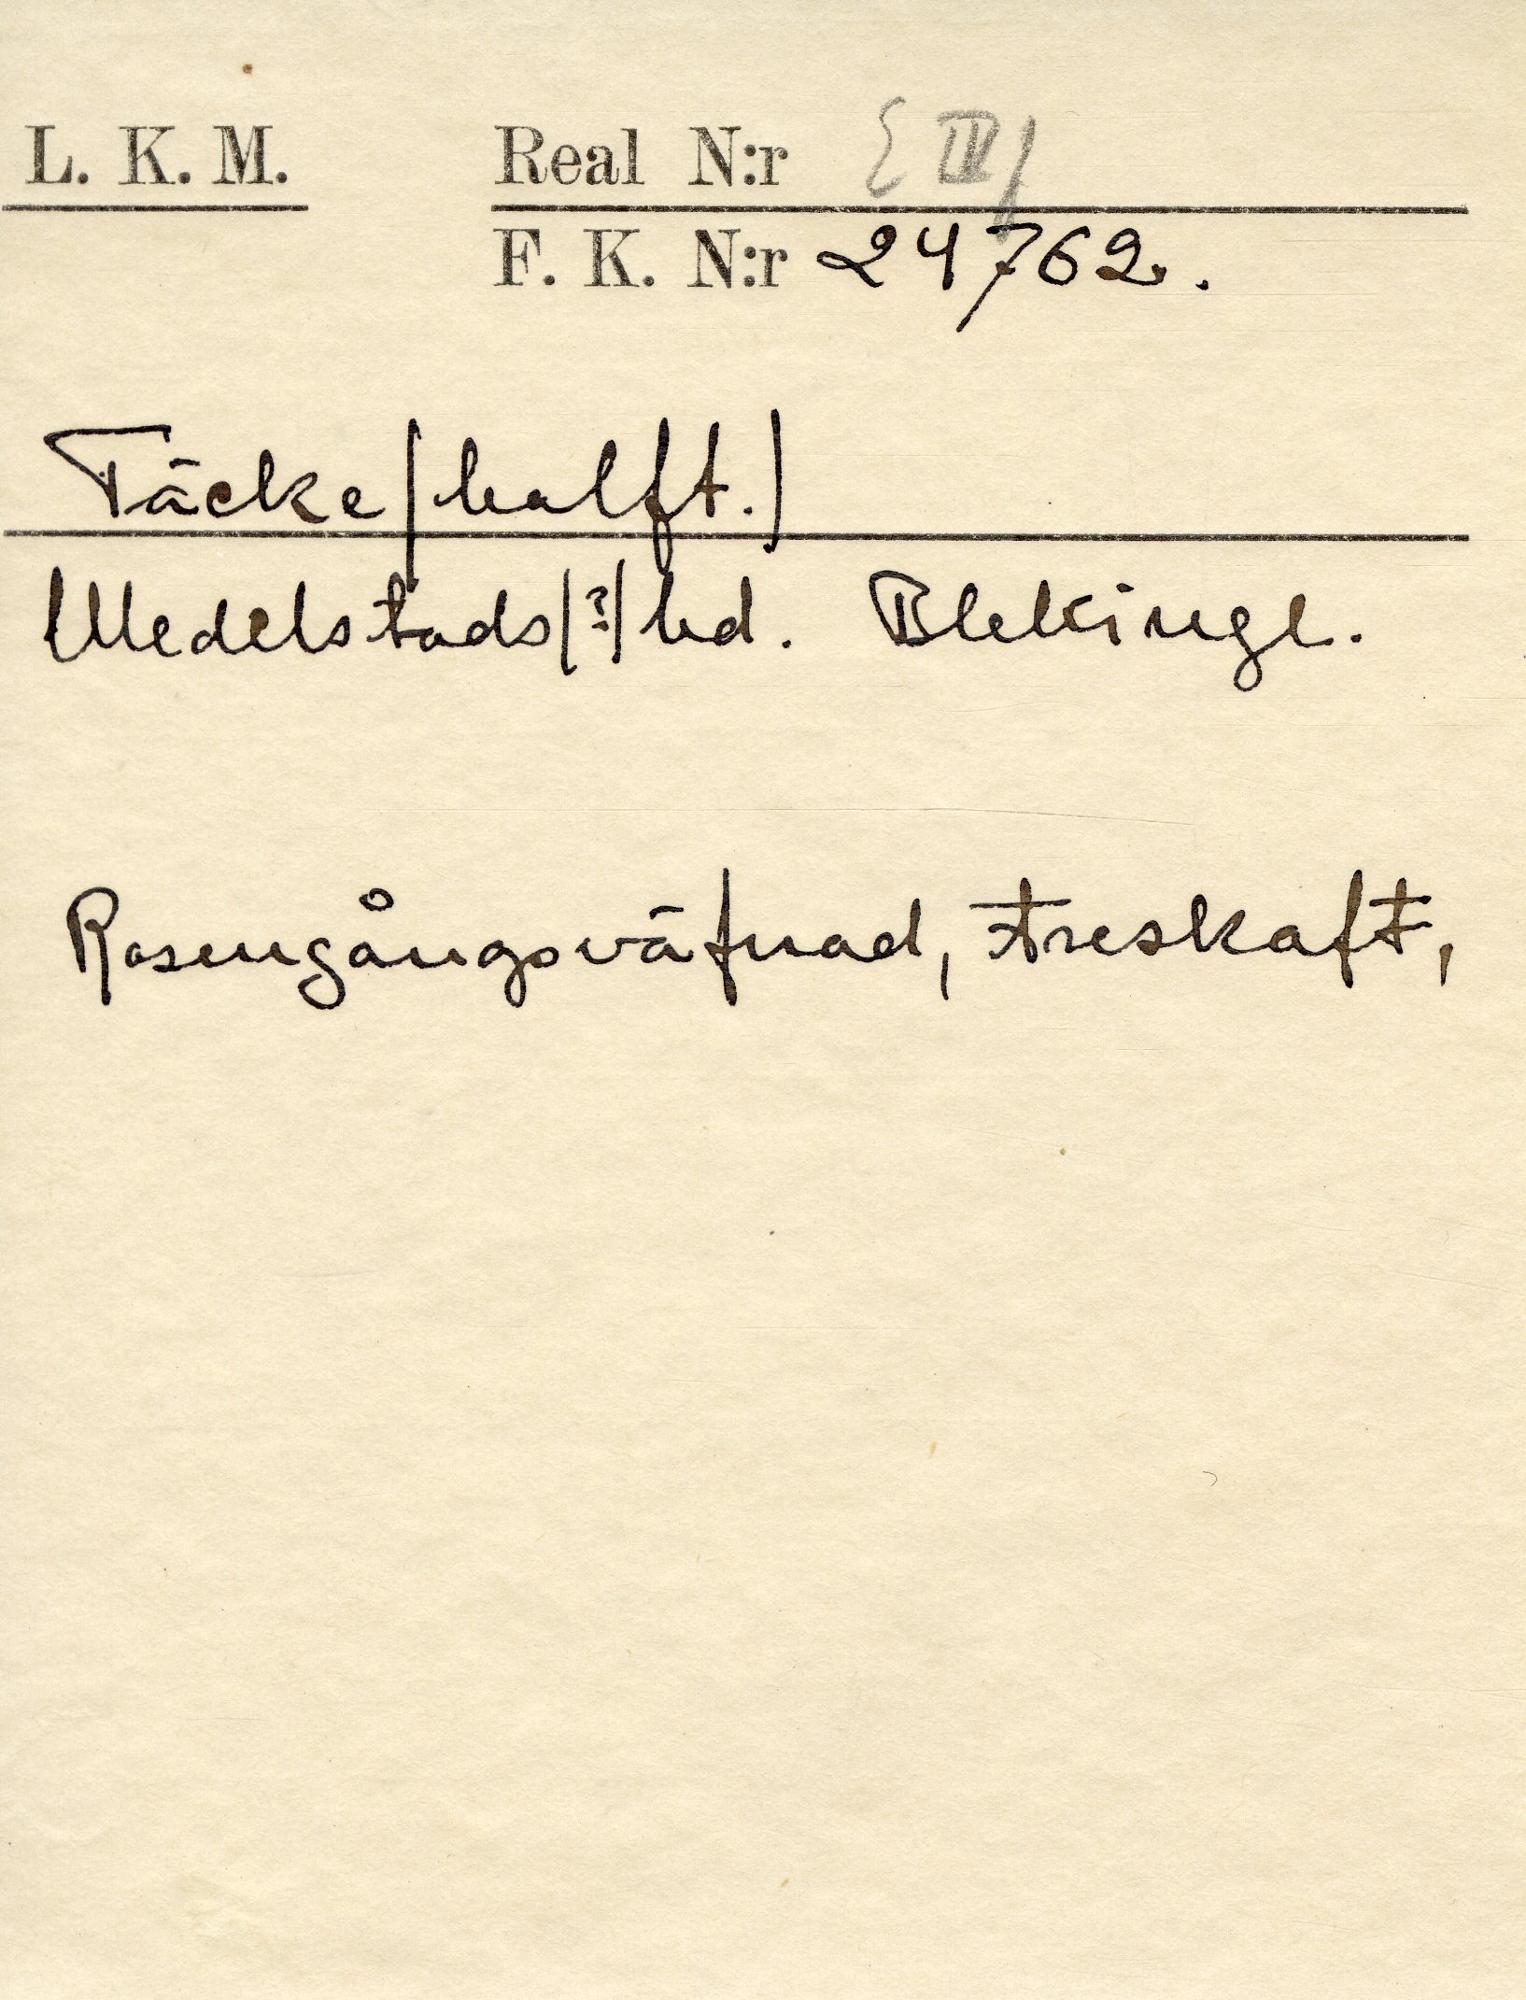 L. K. M. Real N:r { IV)
F. K. N:r 24762.
Täcke (halft.)
Medelstads (?) hd. Blekinge.
Rosengångsväfnad, treskaft,